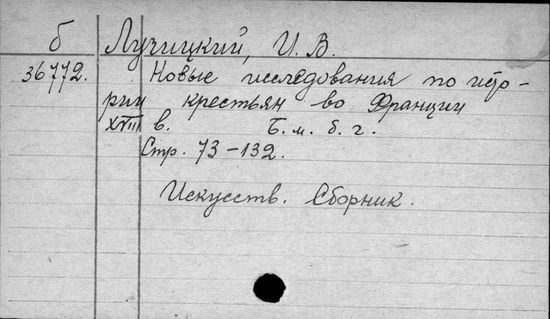 б Лучицкий, И. В.
36772. Новые исследования по исто-
рии крестьян во Франции
XVIII в. Б. м. б. г.
Стр. 73-132.
Искусств. Сборник.